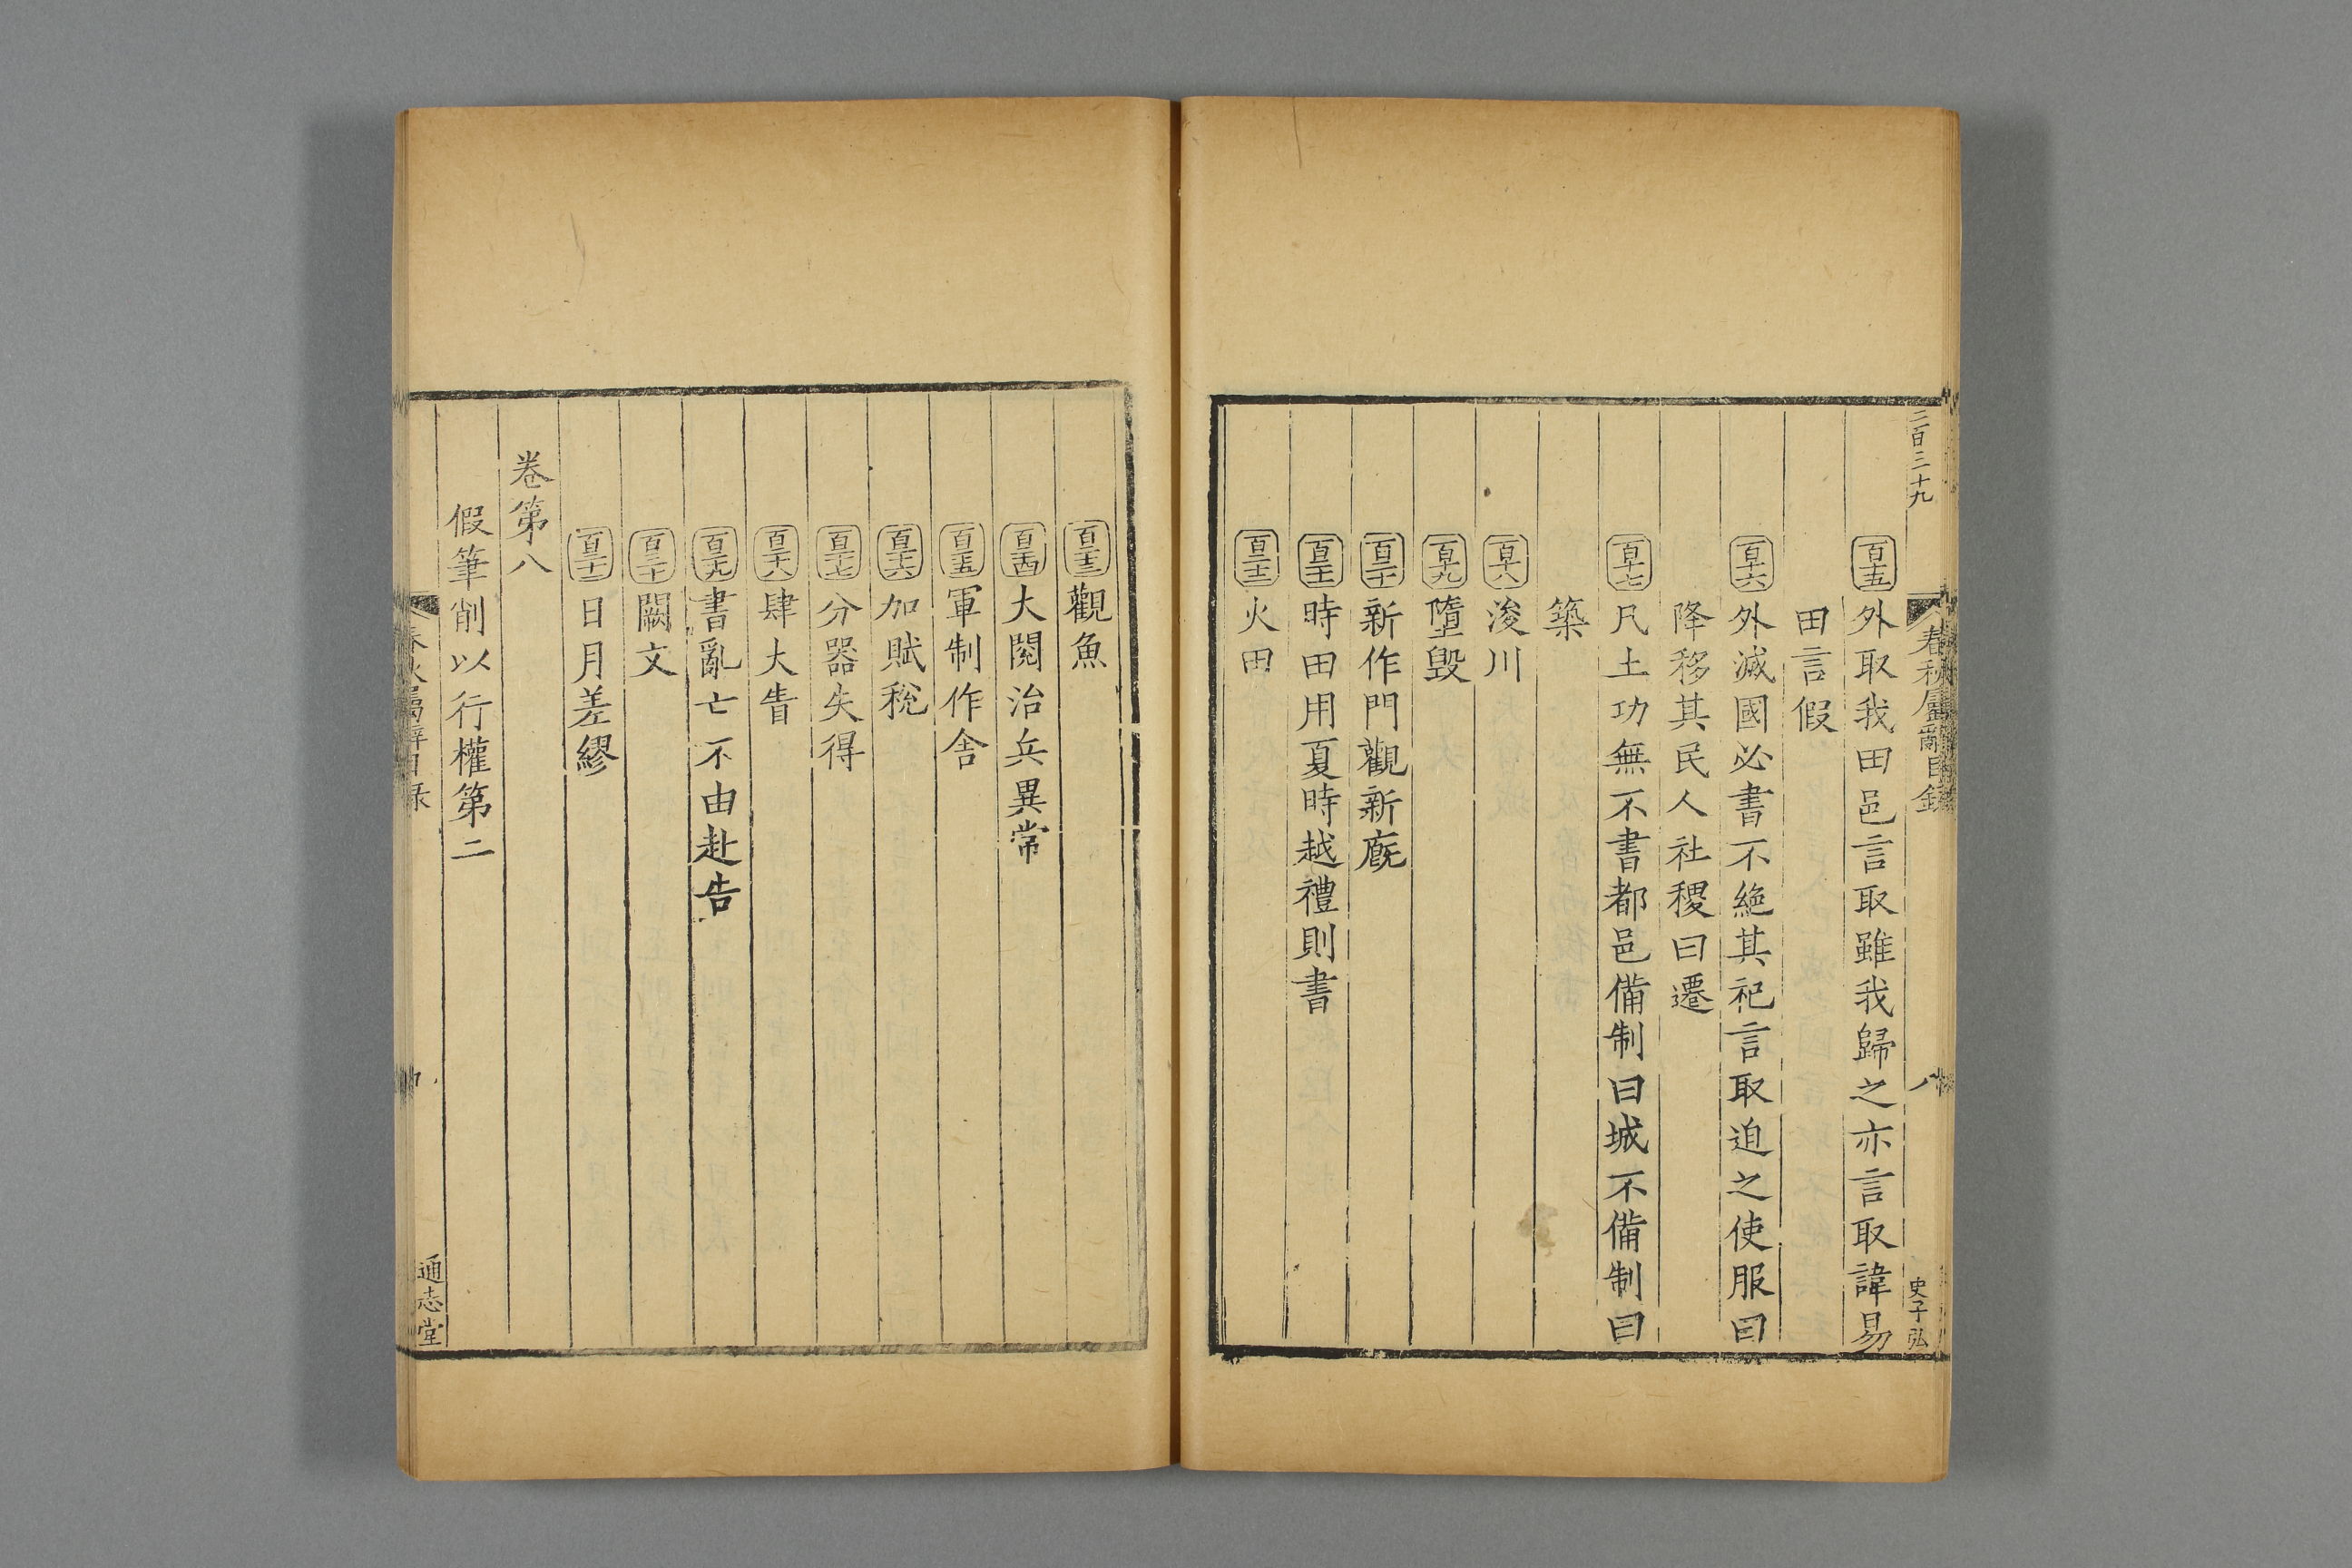 二百三十九
春秋屬辭目錄
八
史子弘
百十五 外取我田邑言取雖我歸之亦言取諱易
田言假
百十六 外滅國必書不絕其祀言取迫之使服曰
降移其民人社稷曰遷
百十七 凡土功無不書都邑備制曰城不備制曰
築
百十八 浚川
百十九 墮毀
百二十 新作門觀新廐
百二十一 時田用夏時越禮則書
百二十二 火田
百二十三 觀魚
百二十四 大閱治兵異常
百二十五 軍制作舍
百二十六 加賦稅
百二十七 分器失得
百二十八 肆大眚
百二十九 書亂亡不由赴告
百三十 闕文
百三十一 日月差繆
卷第八
假筆削以行權第二
春秋屬辭目錄
通志堂